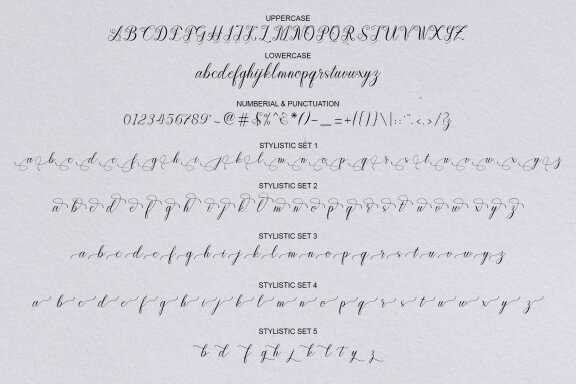 UPPERCASE
ABCDEFGHIJKLMNOPQRSTUVWXYZ
LOWERCASE
abcdefghijklmnopqrstuvwxyz
NUMBERIAL & PUNCTUATION
0123456789
STYLISTIC SET 1
a b c d e f g h i j k l m n o p q r s t u v w x y z
STYLISTIC SET 2
a b c d e f g h i j k l m n o p q r s t u v w x y z
STYLISTIC SET 3
a b c d e f g h i j k l m n o p q r s t u v w x y z
STYLISTIC SET 4
a b c d e f g h i j k l m n o p q r s t u v w x y z
STYLISTIC SET 5
b d f g h j k l t y z